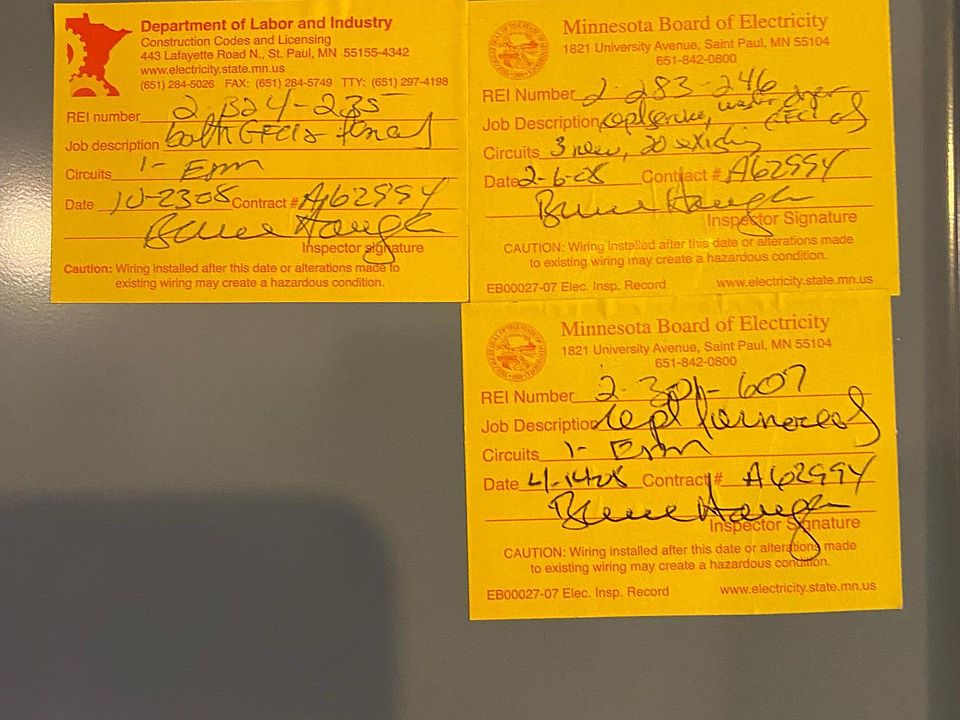 Department of Labor and Industry
Construction Codes and Licensing
443 Lafayette Road N., St. Paul, MN 55155-4342
www.electricity.state.mn.us
(651) 284-5026 FAX: (651) 284-5749 TTY: (651) 297-4198
REI number 2-324-235
Job description bath GFCIs final
Circuits 1-
Date 10-23-08 Contract # A62994
Inspector signature
Caution: Wiring installed after this date or alterations made to
existing wiring may create a hazardous condition.
Minnesota Board of Electricity
1821 University Avenue, Saint Paul, MN 55104
651-842-0800
REI Number 2-283-246
Job Description repl service, washer dryer
GFCI
Circuits 3 new, 20 existing
Date 2-6-08 Contract # A62994
Inspector Signature
CAUTION: Wiring installed after this date or alterations made
to existing wiring may create a hazardous condition.
EB00027-07 Elec. Insp. Record www.electricity.state.mn.us
Minnesota Board of Electricity
1821 University Avenue, Saint Paul, MN 55104
651-842-0800
REI Number 2-301-607
Job Description repl furnace
Circuits 1-
Date 4-14-08 Contract # A62994
Inspector Signature
CAUTION: Wiring installed after this date or alterations made
to existing wiring may create a hazardous condition.
EB00027-07 Elec. Insp. Record www.electricity.state.mn.us